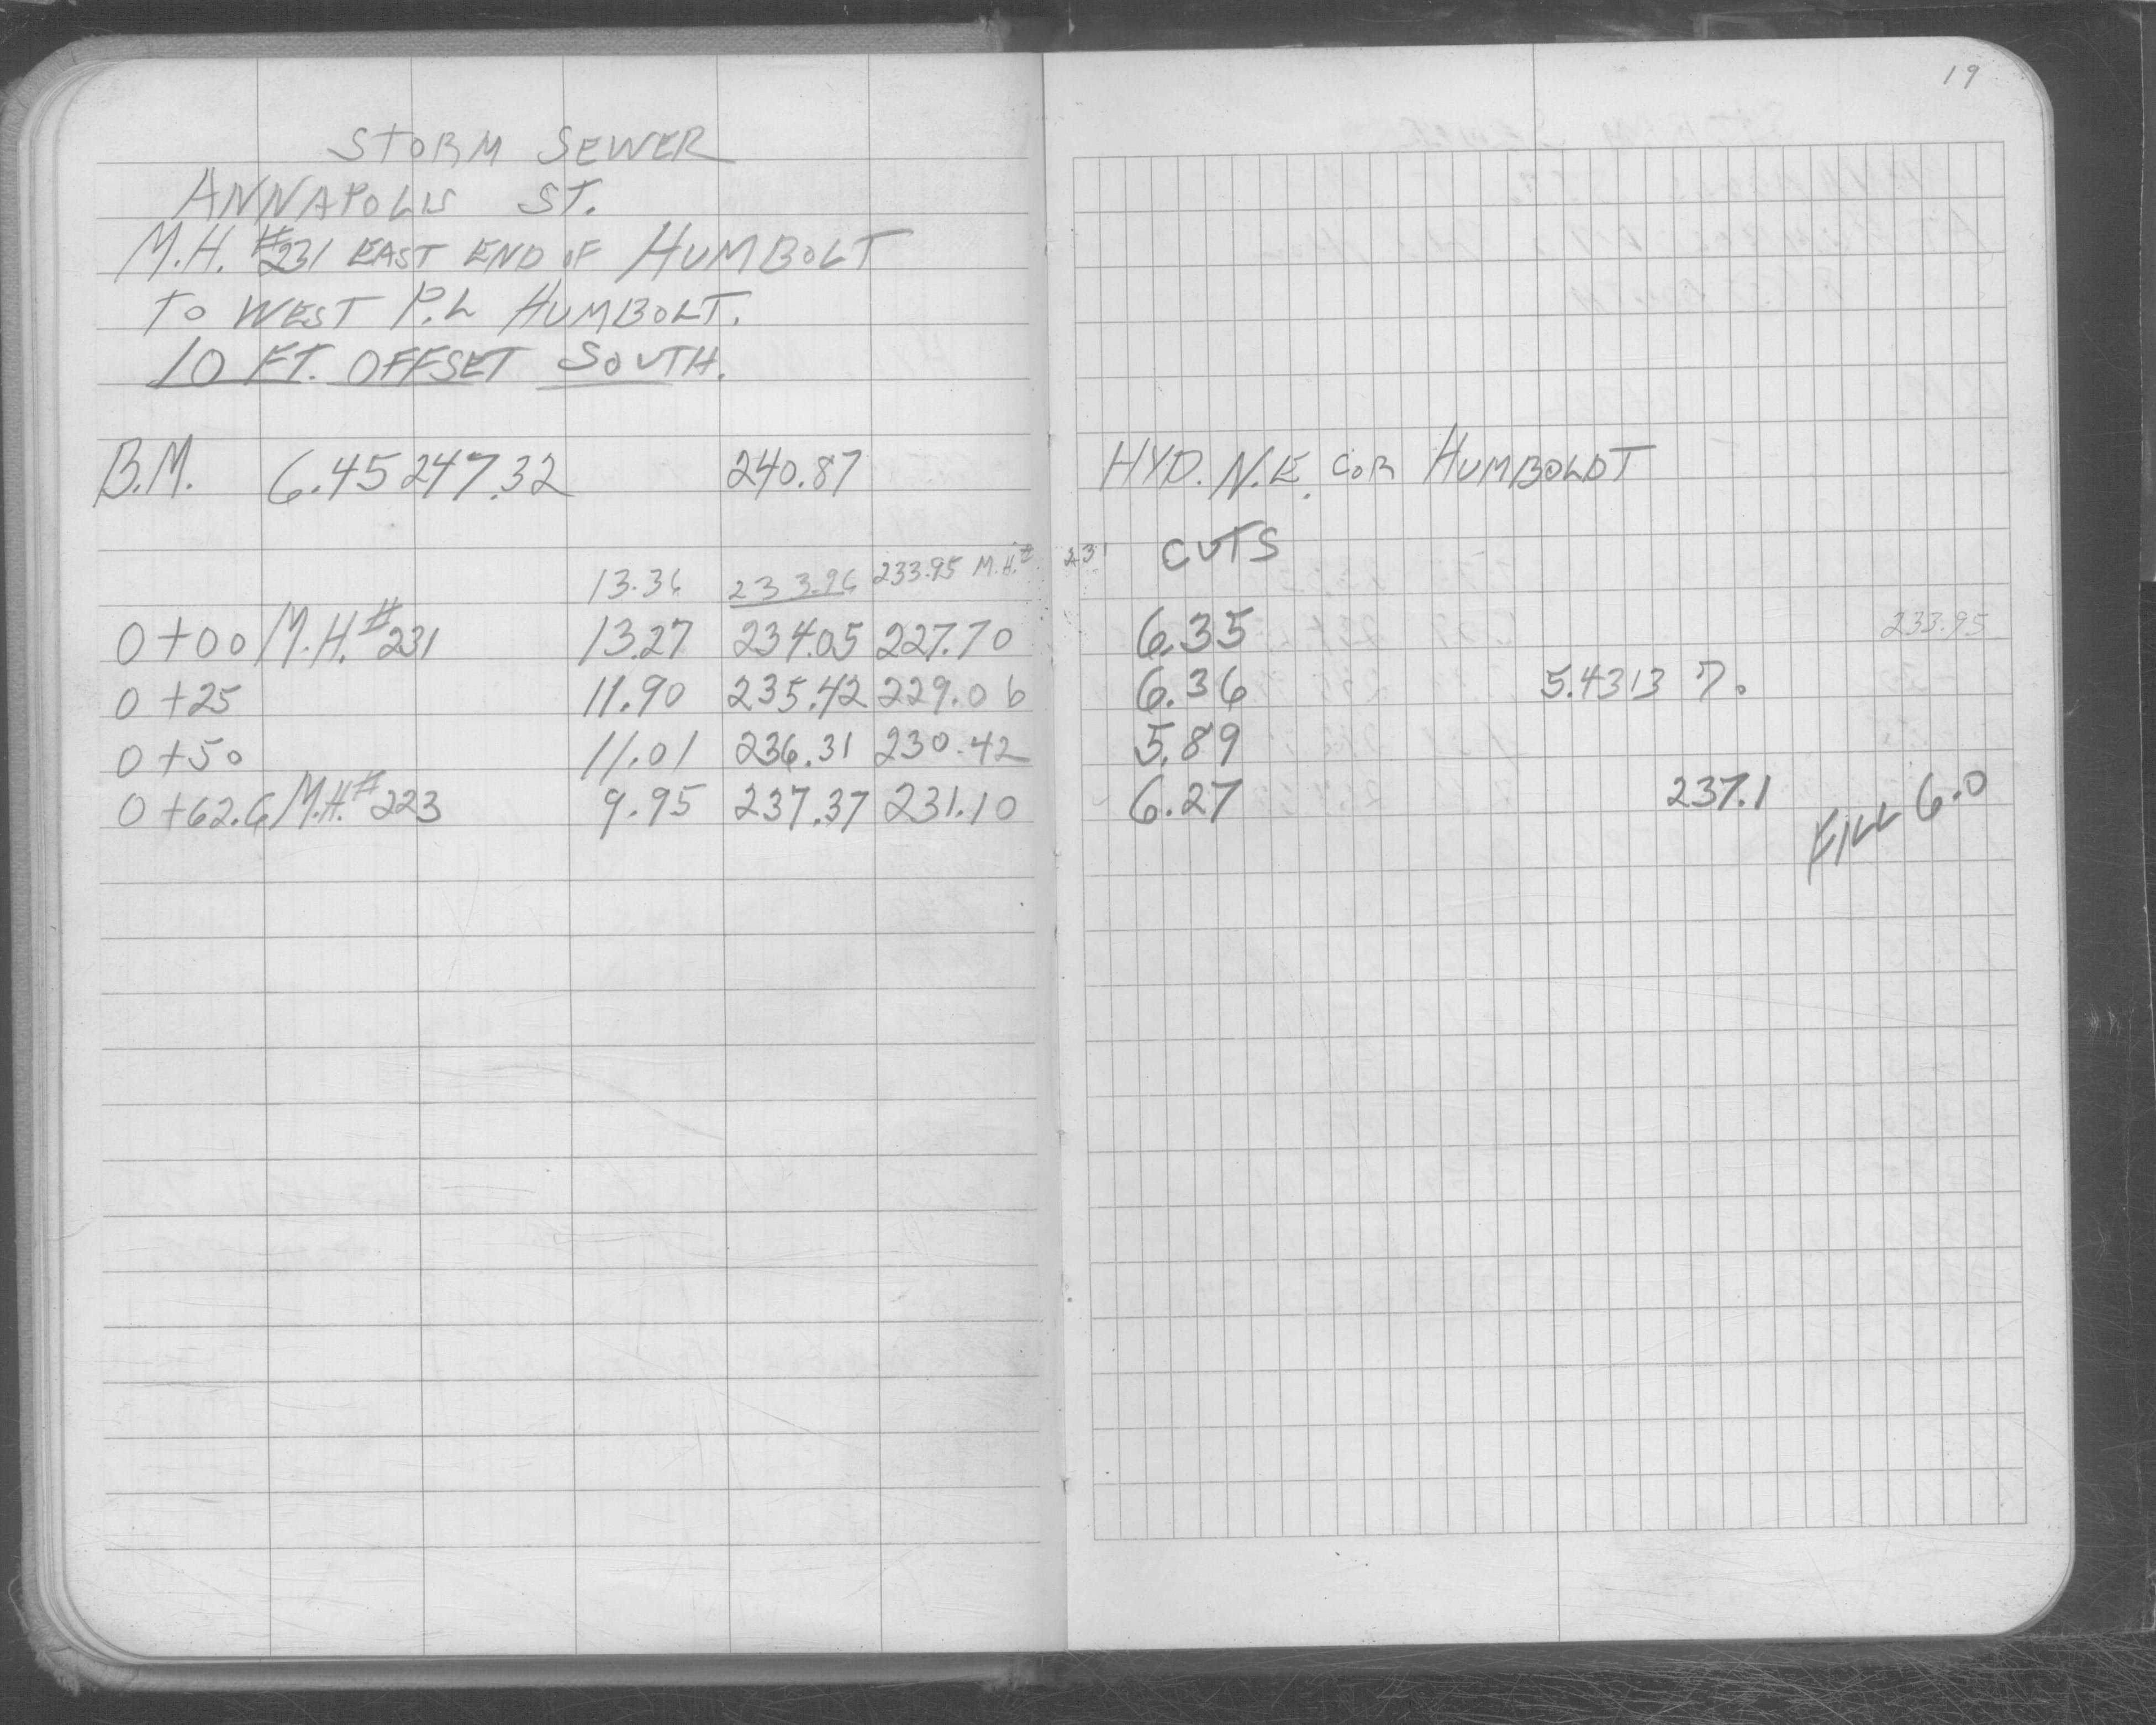 19
STORM SEWER
ANNAPOLIS ST.
M.H. #231 EAST END OF HUMBOLT
TO WEST P.L HUMBOLT.
10 FT. OFFSET SOUTH.
B.M. 6.45 247.32 240.87 HYD. N.E. COR HUMBOLDT
13.36 233.96 233.95 M.H.# 231 CUTS
0+00 M.H.#231 13.27 234.05 227.70 6.35 233.95
0+25 11.90 235.42 229.06 6.36 5.4313 %
0+50 11.01 236.31 230.42 5.89
0+62.6 M.H.#223 9.95 237.37 231.10 6.27 237.1 FILL 6.0